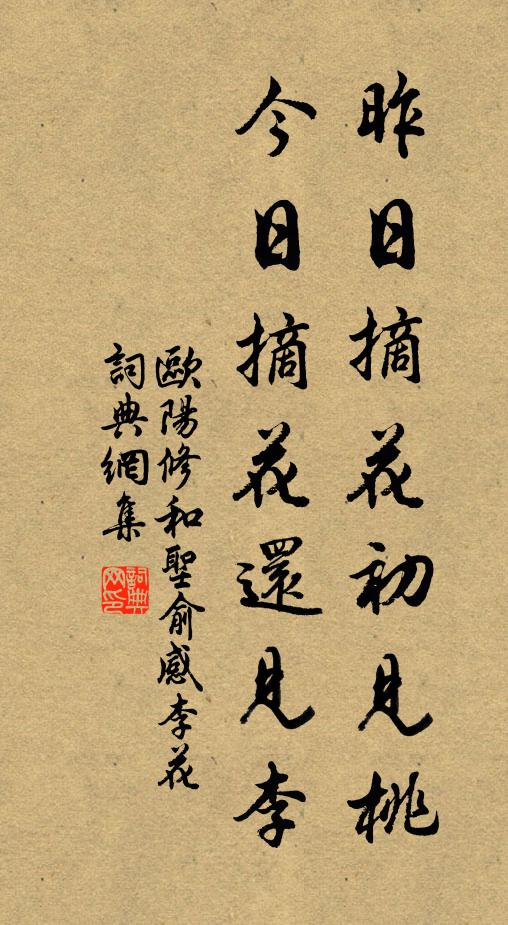 昨日摘花初見桃
今日摘花還見李
歐陽修和聖俞感李花
詞典網集
詞典网印